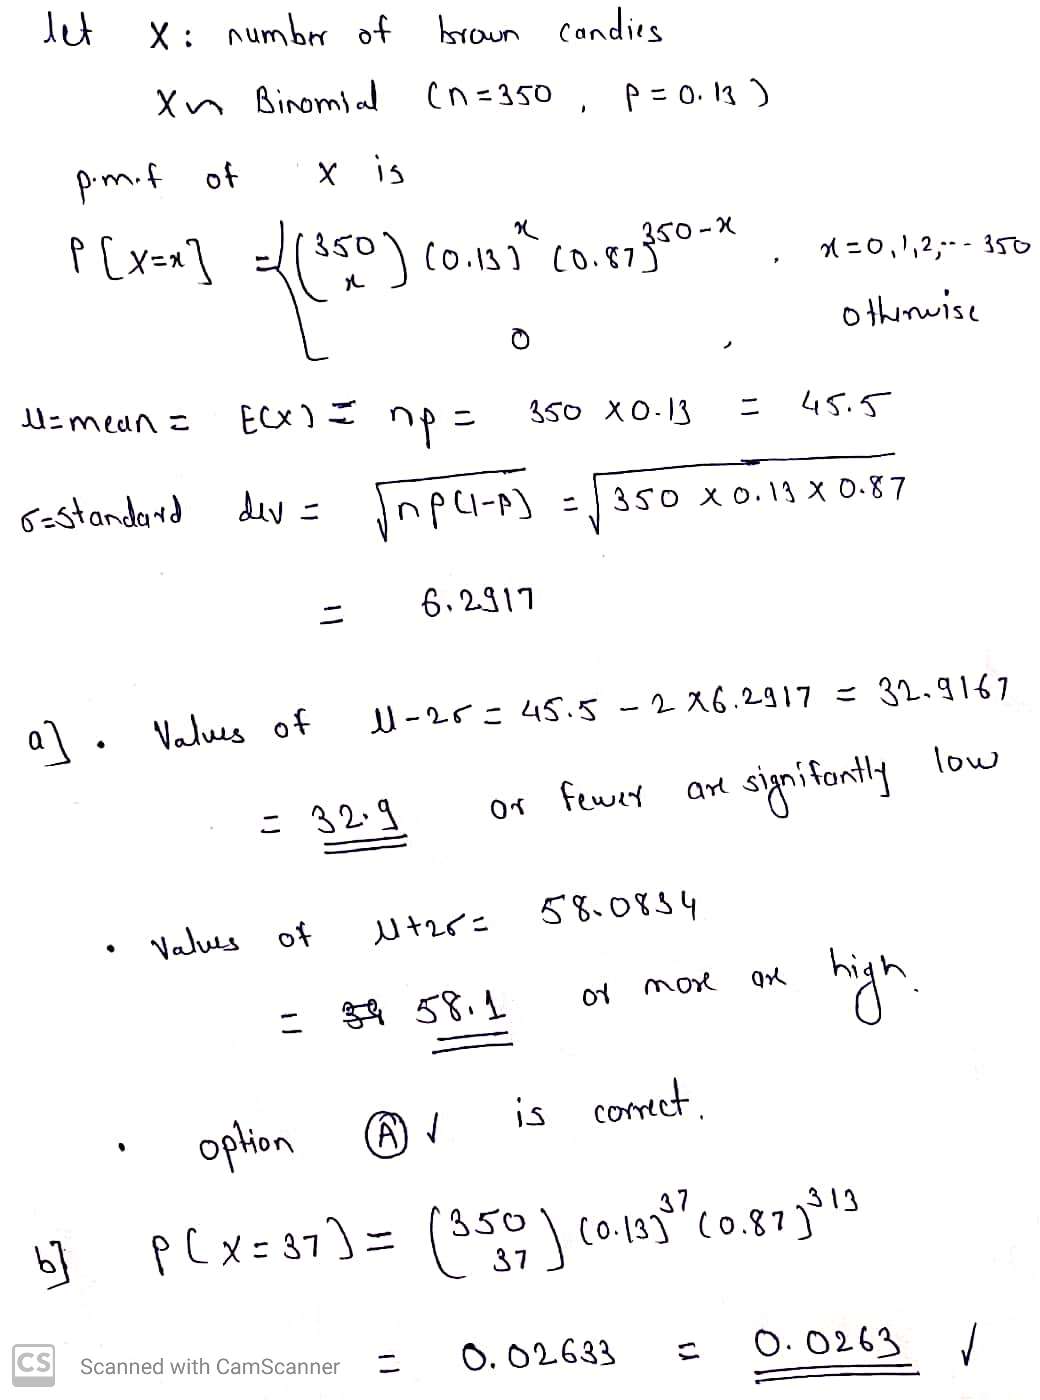 let X: number of brown candies
X~ Binomial (n=350, p=0.13)
p.m.f of x is
P[X=x] = { (350 x) (0.13)^x (0.87)^350-x , x=0,1,2,--- 350
0 , otherwise
μ=mean = E(X) = np = 350 x 0.13 = 45.5
σ=standard dev = √np(1-p) = √350 x 0.13 x 0.87
= 6.2917
a]. Values of μ-2σ = 45.5 - 2 x 6.2917 = 32.9167
= 32.9 or fewer are signifantly low
• Values of μ+2σ = 58.0834
= 58.1 or more are high.
• option Ⓐ ✓ is correct.
b] P[X=37] = (350 37) (0.13)^37 (0.87)^313
= 0.02633 = 0.0263 ✓
CS Scanned with CamScanner